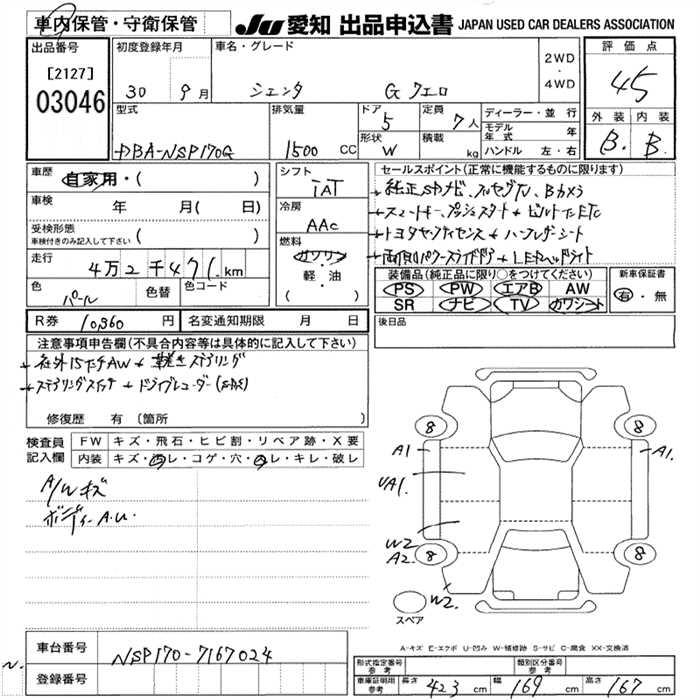 車内保管・守衛保管
JU 愛知 出品申込書 JAPAN USED CAR DEALERS ASSOCIATION
出品番号 [2127] 03046
初度登録年月 30 9月
車名・グレード シエンタ G クエロ
2WD・4WD
評価点 45
外装 内装
B. B.
型式 DBA-NSP170G
排気量 1500 CC
ドア 5
形状 W
定員 7人
積載 kg
ディーラー・並行
モデル年式 年
ハンドル 左・右
車歴 自家用・( )
車検 年 月(日)
受検形態 車検付きのみ記入して下さい ( )
走行 4万2千471.km
色 パール 色替 色コード
R券 10,360円 名変通知期限 月 日
シフト IAT
冷房 AAC
燃料 ガソリン・軽・油 ( )
セールスポイント(正常に機能するものに限ります)
純正SDナビ、フルセグTV、Bカメラ
スマートキー、プッシュスタート + ビルトインETC
トヨタセーフティセンス + ハーフレザーシート
両側パワースライドドア + LEDヘッドライト
装備品(純正品に限り○をつけてください)
PS PW エアB AW
SR ナビ TV カワシート
新車保証書 有・無
後日品
注意事項申告欄(不具合内容等は具体的に記入して下さい)
社外15インチAW + 革巻きステアリング
ステアリングスイッチ + ドライブレコーダー
修復歴 有 〔箇所
検査員記入欄
FW キズ・飛石・ヒビ割・リペア跡・X要
内装 キズ・レ・コゲ・穴・レ・キレ・破レ
A/Wキズ
ボディーA.U.
8 8
A1 A1.
UA1.
W2
A2.
8 8
W2.
スペア
A-キズ E-エクボ U-凹み W-補修跡 S-サビ C-腐食 XX-交換済
車台番号 NSP170-7167024
登録番号
N.
形式指定番号 参考 類別区分番号 参考
車庫証明用 参考 長さ 423 cm 幅 169 cm 高さ 167 cm